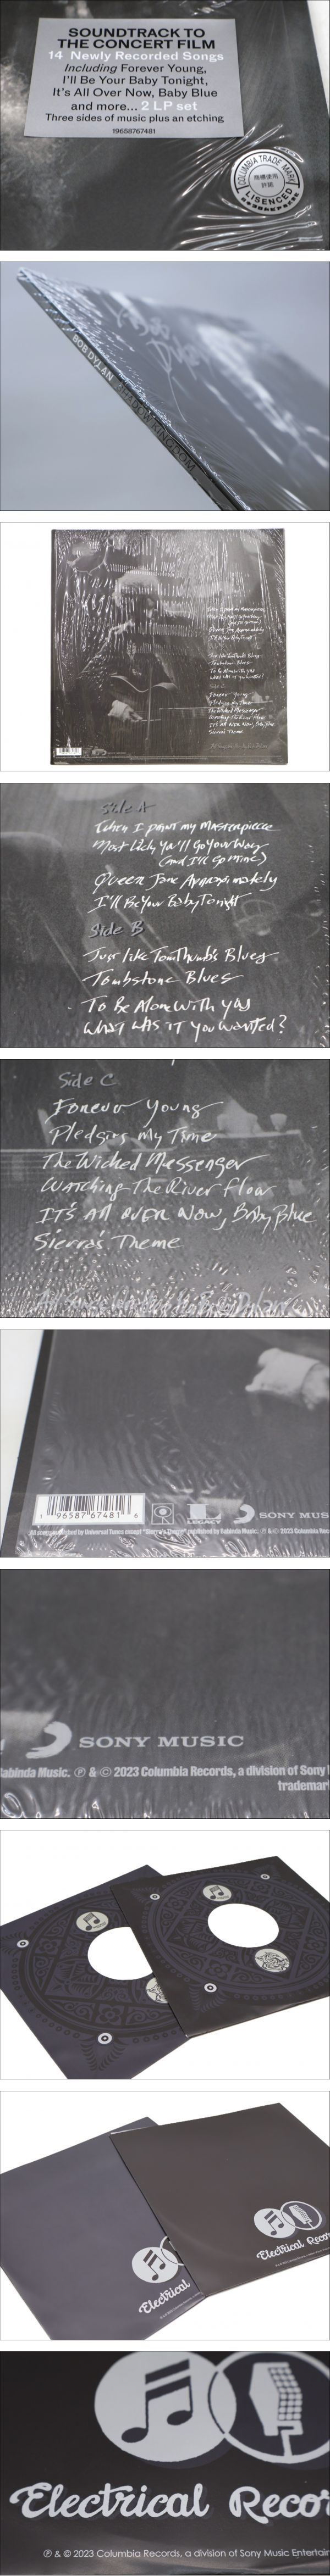 SOUNDTRACK TO
THE CONCERT FILM
14 Newly Recorded Songs
Including Forever Young,
I'll Be Your Baby Tonight,
It's All Over Now, Baby Blue
and more... 2 LP set
Three sides of music plus an etching
19658767481
COLUMBIA TRADE MARK
商標使用
許諾
LISENCED
BOB DYLAN SHADOW KINGDOM
Side A
When I paint my Masterpiece
Most Likely You'll Go Your Way
(and I'll Go Mine)
Queen Jane Approximately
I'll Be Your Baby Tonight
Side B
Just like Tom Thumb's Blues
Tombstone Blues
To Be Alone With you
What Was it You Wanted?
Side C
Forever Young
Pledging my Time
The Wicked Messenger
Watching The River Flow
IT'S All OVER Now, Baby Blue
Sierra's Theme
1 96587 67481 6
LEGACY
SONY MUS
All songs published by Universal Tunes except "Sierra's Theme" published by Babinda Music. ℗ & © 2023 Columbia Rec
SONY MUSIC
Babinda Music. ℗ & © 2023 Columbia Records, a division of Sony
trademar
Electrical
Electrical Recor
Electrical Recor
℗ & © 2023 Columbia Records, a division of Sony Music Entertain